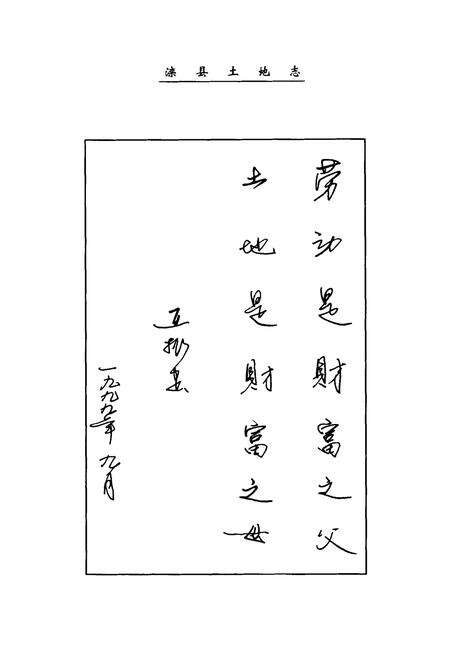 滦县土地志
劳动是财富之父
土地是财富之母
一九九九年九月